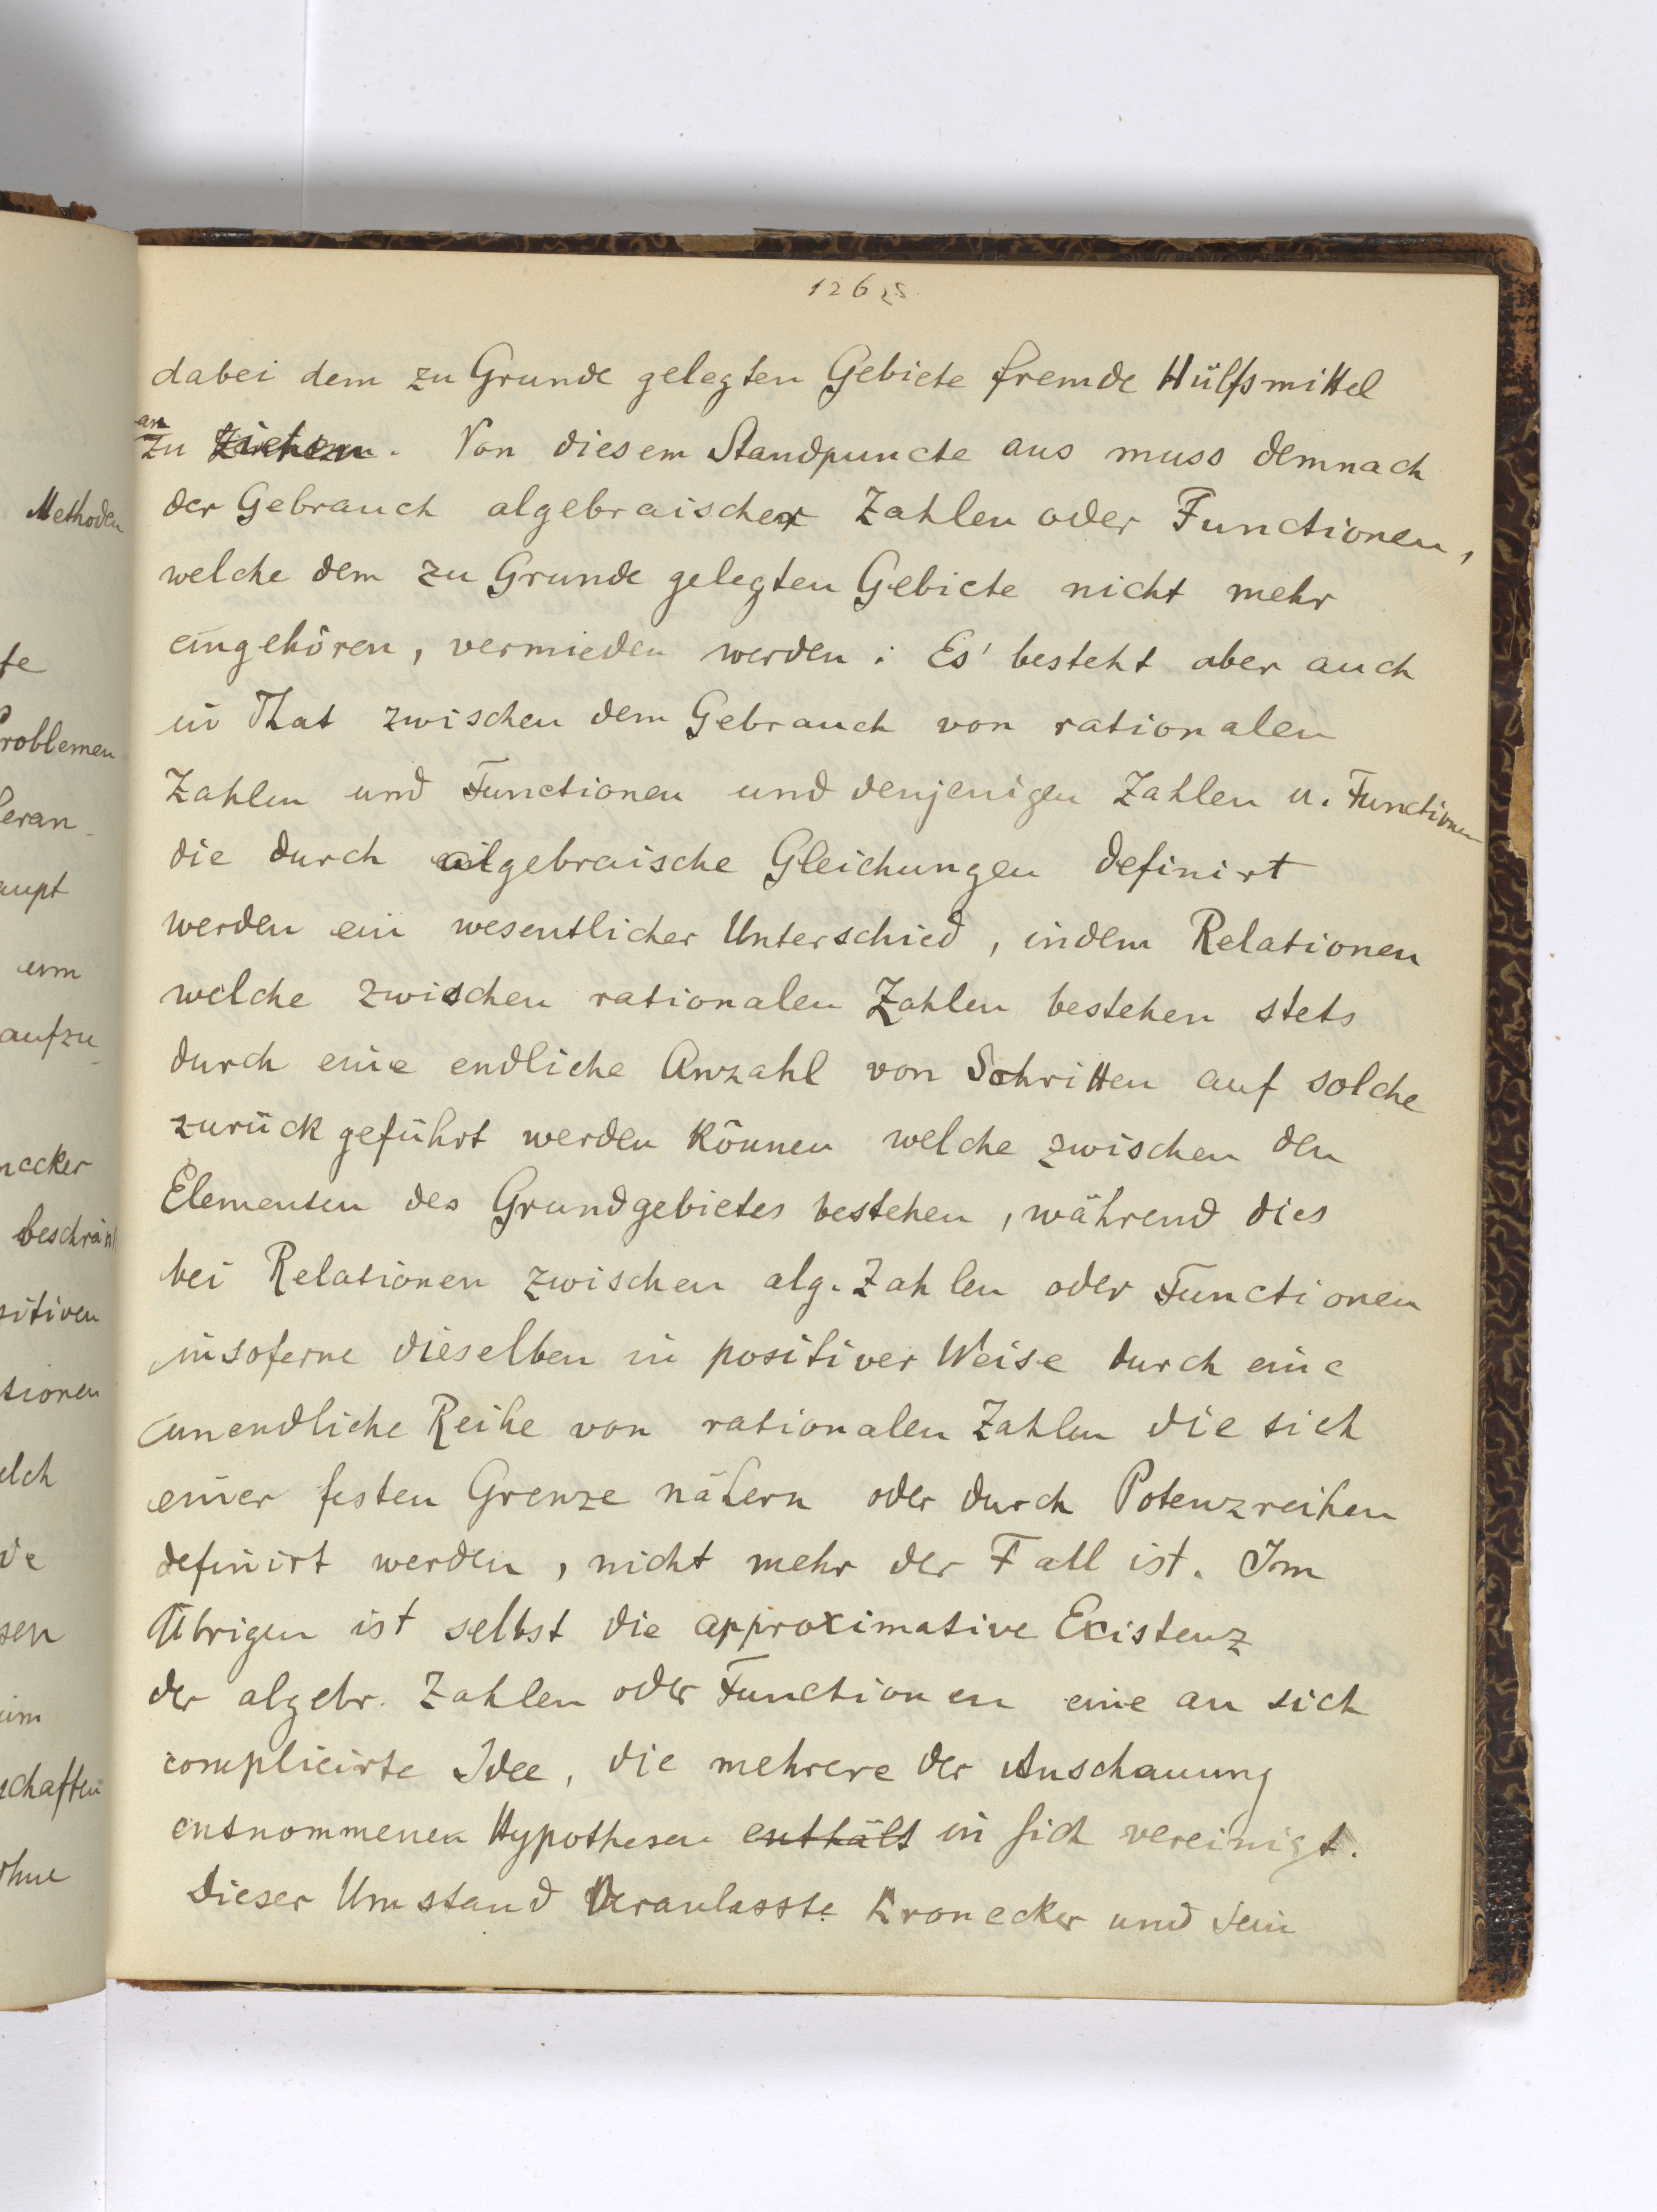 Methoden
te
roblemen
eran-
aupt
um
aufzu-
necker
beschrän
sitiven
tionen
elch
de
sen
im
schaften
ohne
126
dabei dem zu Grunde gelegten Gebiete fremde Hülfsmittel
an
zu ziehen. Von diesem Standpuncte aus muss demnach
der Gebrauch algebraischer Zahlen oder Functionen,
welche dem zu Grunde gelegten Gebiete nicht mehr
eingehören, vermieden werden. Es besteht aber auch
in That zwischen dem Gebrauch von rationalen
Zahlen und Functionen und denjenigen Zahlen u. Functionen
die durch algebraische Gleichungen definirt
werden ein wesentlicher Unterschied, indem Relationen
welche zwischen rationalen Zahlen bestehen stets
durch eine endliche Anzahl von Schritten auf solche
zurück geführt werden können welche zwischen den
Elementen des Grundgebietes bestehen, während dies
bei Relationen zwischen alg. Zahlen oder Functionen
insoferne dieselben in positiver Weise durch eine
unendliche Reihe von rationalen Zahlen die sich
einer festen Grenze nähern oder durch Potenzreihen
definirt werden, nicht mehr der Fall ist. Im
Übrigen ist selbst die approximative Existenz
der algebr. Zahlen oder Functionen eine an sich
complicirte Idee, die mehrere der Anschauung
entnommenen Hypothesen enthält in sich vereinigt.
Dieser Umstand veranlasste Kronecker und sein